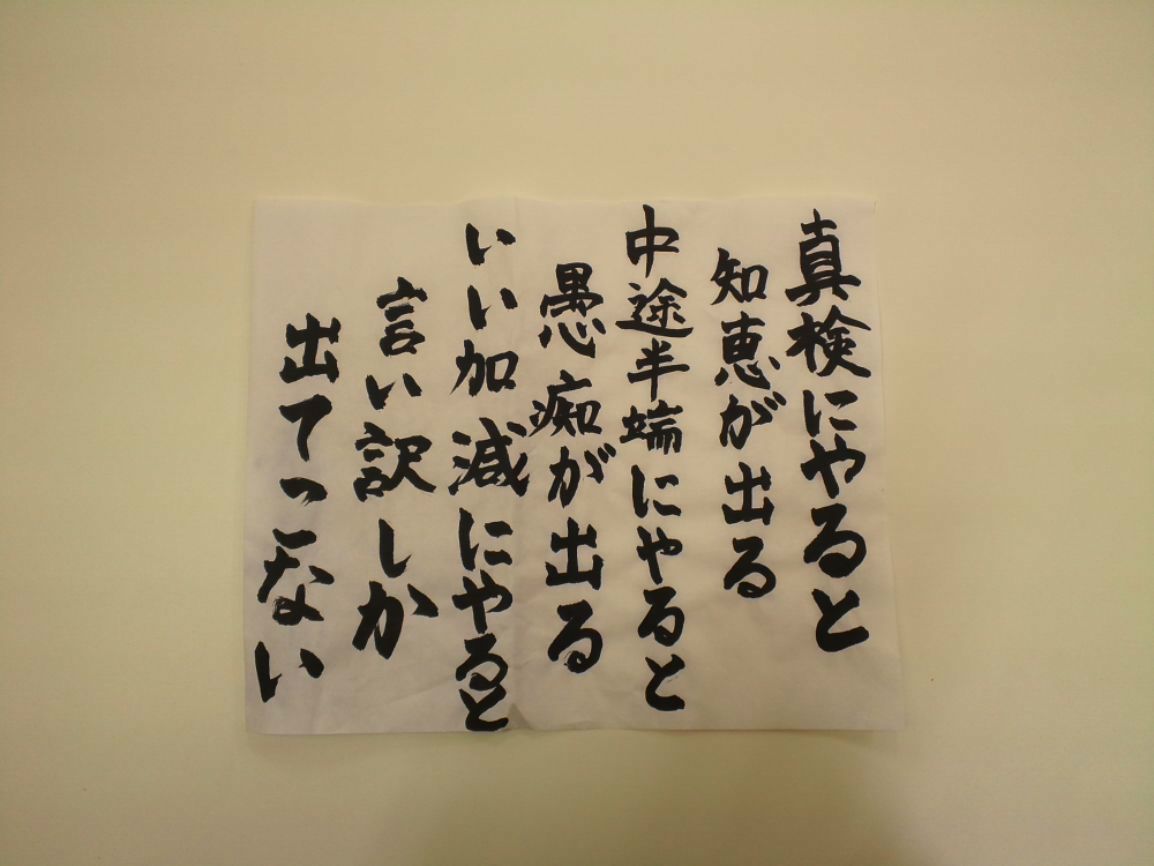 真検にやると
知恵が出る
中途半端にやると
愚痴が出る
いい加減にやると
言い訳しか
出てこない